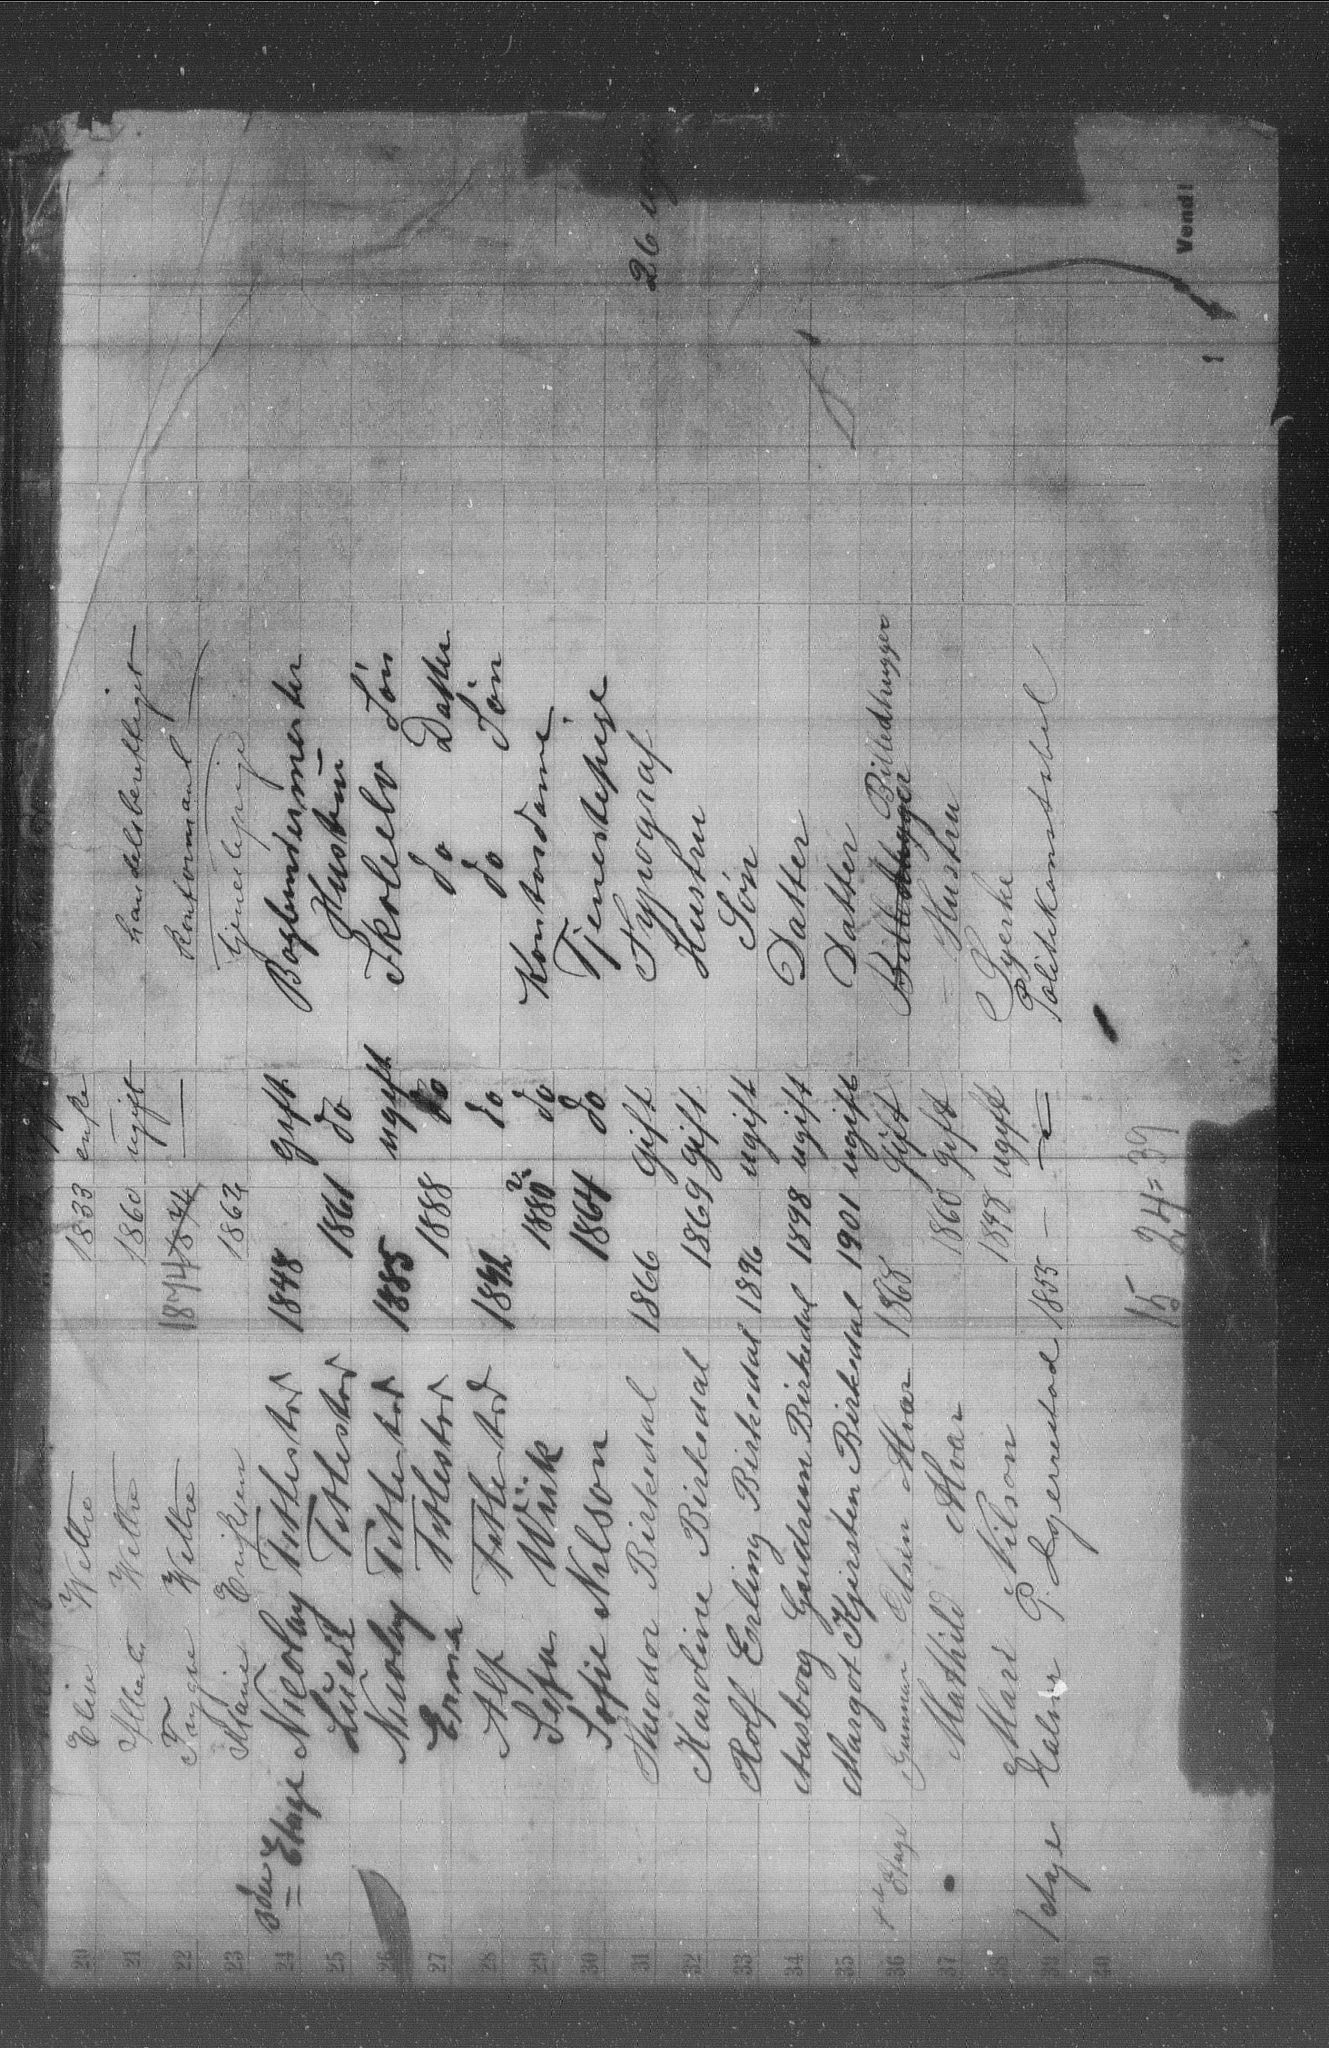 20 Elise Wettre 1833 enke
21 Alberta Wettre 1860 ugift handelsberettiget
22 Trygve Wettre 1874 1874 — kontormand —
23 Marie Eriksen 1862 tjenestepige
24 3die Etage Nicolay Tittestad 1848 gift Bogbindermester
25 Lucie Tittestad 1861 do Hustru
26 Nicolay Tittestad 1885 ugift Skoleelv Søn
27 Erna Tittestad 1888 do do Datter
28 Alf Tittestad 1892 do do Søn
29 Wiik 1880 do Kontordame
30 Sofie Nelson 1864 do Tjenestepige
31 Theodor Birkedal 1866 gift Typograf 26
32 Karoline Birkedal 1869 gift Hustru
33 Rolf Erling Birkedal 1896 ugift Søn
34 Aasborg Gudrun Birkedal 1898 ugift Datter
35 Margot Kjersten Birkedal 1901 ugift Datter
36 4de Etage Gunnar Olsen Hvar 1868 Gift Billedhugger
37 Mathild Hvar 1860 gift = Hustru
38 Mari Nilson 1848 ugift Styerke
39 1 etage P. Gjerrestad 1855 — Politikonstabel
40
15 24=39
Vend!